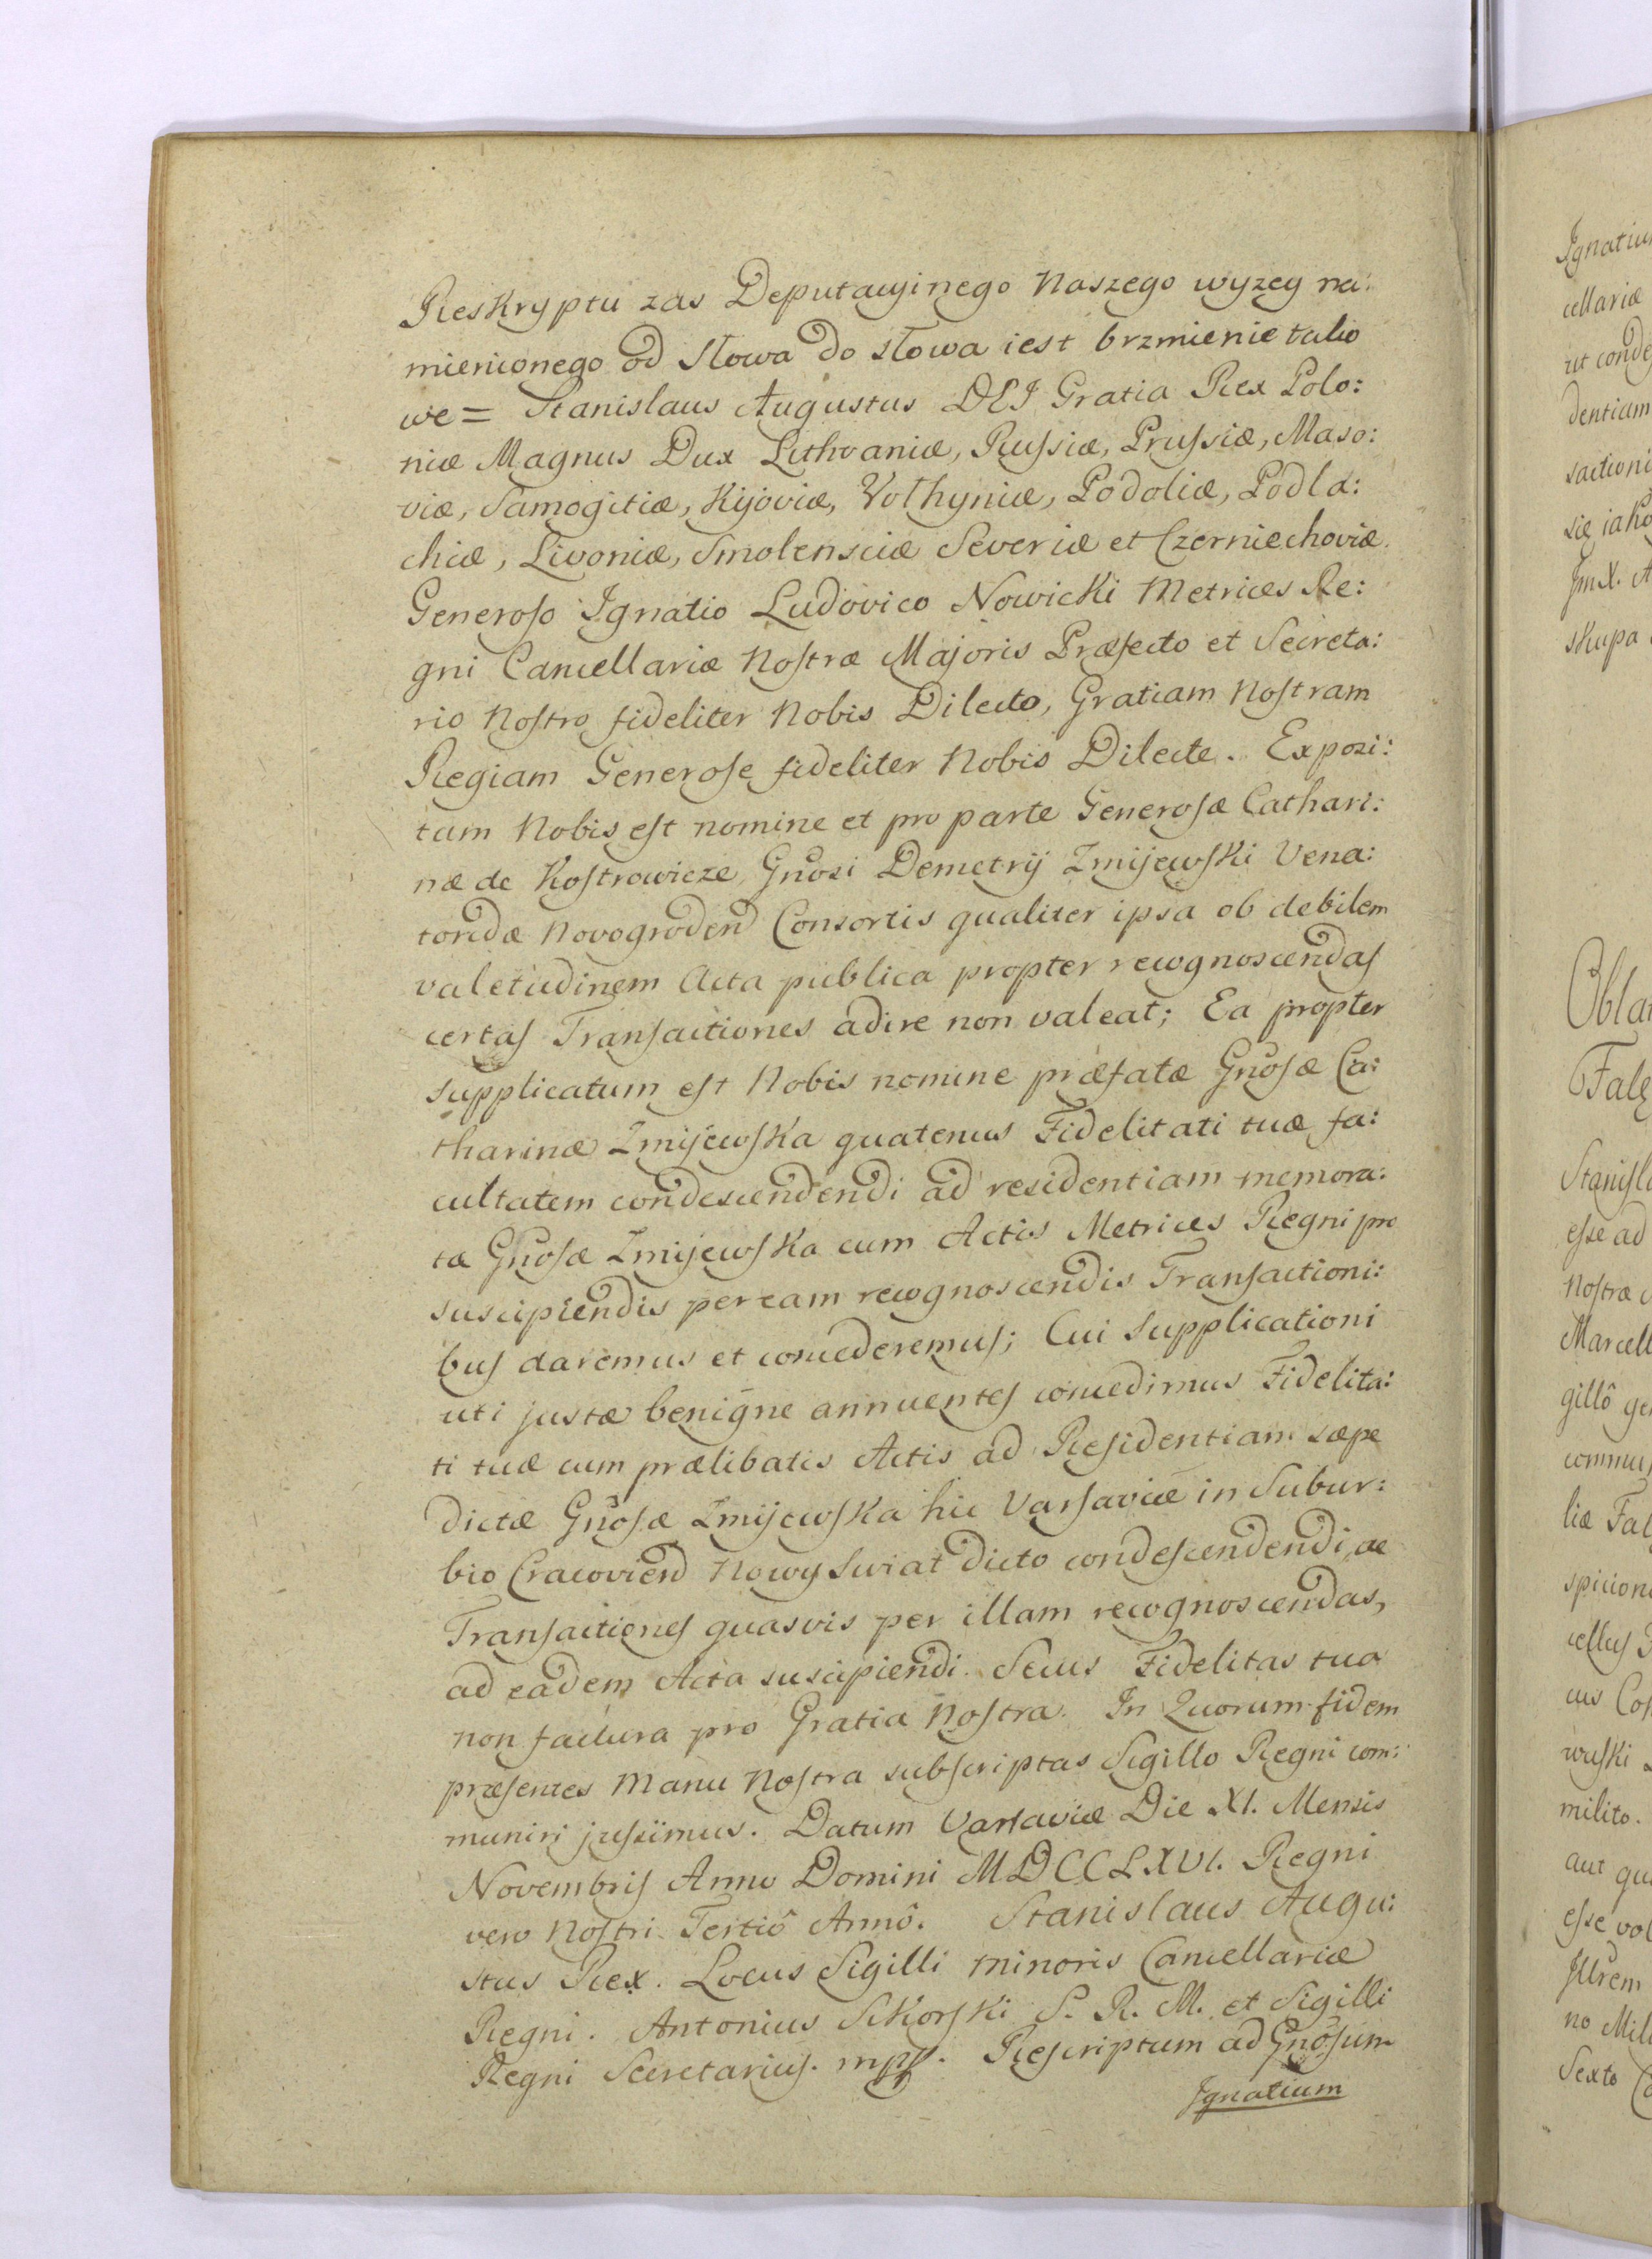 Reskryptu zas Deputacyinego Naszego wyzey na:
mienionego od Słowa do słowa iest brzmienie tako
we = Stanislaus Augustus DEI Gratia Rex Polo:
niæ Magnus Dux Lithvaniæ, Rußiæ, Prußiæ, Maso:
viæ, Samogitiæ, Kijoviæ, Volhyniæ, Podoliæ, Podla:
chiæ, Livoniæ, Smolensciæ Severiæ et Czerniechoviæ.
Generoso Ignatio Ludovico Nowicki Metrices Re:
gni Cancellariæ Nostræ Majoris Præfecto et Secreta:
rio Nostro fideliter Nobis Dilecto, Gratiam Nostram
Regiam Generose fideliter Nobis Dilecte. Exposi:
tum Nobis est nomine et pro parte Generosæ Cathari:
næ de Kostrowicze, Gnosi Demetrij Zmijewski Vena:
toridæ Novogroden Consortis qualiter ipsa ob debilem
valetudinem Acta publica propter recognoscendas
certas Transactiones adire non valeat; Ea propter
supplicatum est Nobis nomine præfatæ Gnosæ Ca:
tharinæ Zmijewska quatenus Fidelitati tuæ fa:
cultatem condescendendi ad residentiam memora:
tæ Gnosæ Zmijewska cum Actis Metrices Regni pro
suscipiendis per eam recognoscendis Transactioni:
bus daremus et concederemus; Cui Supplicationi
uti justæ benigne annuentes concedimus Fidelita:
ti tuæ cum prælibatis Actis ad Residentiam sæpe
dictæ Gnosæ Zmijewska hic Varsaviæ in Subur:
bio Cracovien Nowy Swiat dicto condescendendi, ac
Transactiones quasvis per illam recognoscendas,
ad eadem Acta suscipiendi. Secus Fidelitas tua
non factura pro Gratia Nostra. In Quorum fidem
præsentes Manu Nostra subscriptas Sigillo Regni com:
muniri jußimus. Datum Varsaviæ Die XI. Mensis
Novembris Anno Domini MDCCLXVI. Regni
vero Nostri Tertiô Annô. Stanislaus Augu:
stus Rex. Locus Sigilli minoris Cancellariæ
Regni. Antonius Sikorski S. R. M. et Sigilli
Regni Secretarius. mpp. Rescriptum ad Gnosum
Ignatium
Ignatiu
cellariæ
rit conde
dentiam
sactioni
się iako
JmX. A
skupa
Obla
Falę
Stanisla
esse ad
Nostræ
Marcell
gillô ge
commu
liæ Fal
spicion
cellus
cus Co
wski
milito.
aut qu
esse vol
Illrem
no Mil
Sexto